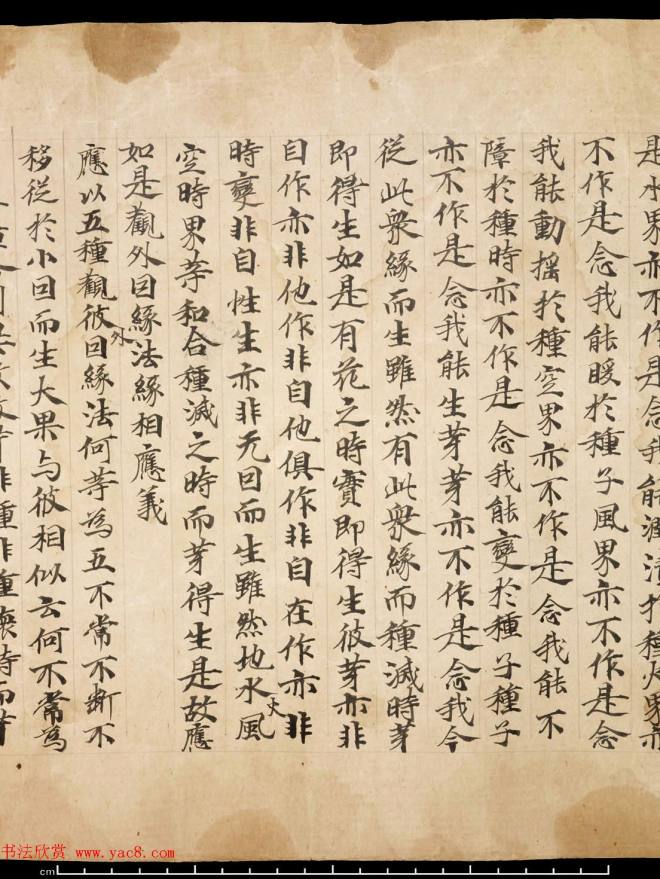 是水界亦不作是念我能潤漬於種火界亦
不作是念我能暖於種子風界亦不作是念
我能動摇於種空界亦不作是念我能不
障於種時亦不作是念我能變於種子種子
亦不作是念我能生芽芽亦不作是念我今
從此衆緣而生雖然有此衆緣而種滅時芽
即得生如是有花之時實即得生彼芽亦非
自作亦非他作非自他俱作非自在作亦非
時變非自性生亦非无因而生雖然地水火風
空時界等和合種滅之時而芽得生是故應
如是觀外因緣法緣相應義
應以五種觀彼外因緣法何等為五不常不斷不
移從於小因而生大果与彼相似云何不常為
非種非種壞時而芽
书法欣赏 www.yac8.com
cm